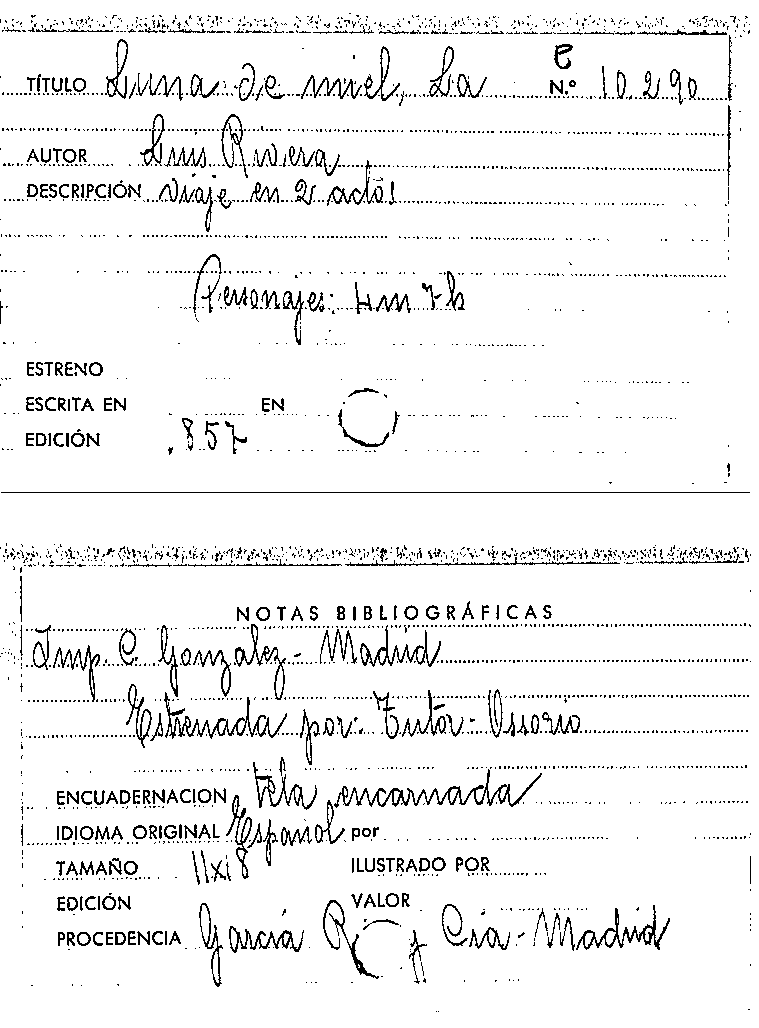 C
TÍTULO Luna de miel, La N.º 10.290
AUTOR Luis Rivera
DESCRIPCIÓN Viaje en 2 actos
Personajes: 4m 7h
ESTRENO
ESCRITA EN EN
EDICIÓN .857
NOTAS BIBLIOGRÁFICAS
Imp. C. Gonzalez - Madrid
Estrenada por: Tutor - Ossorio
ENCUADERNACION tela encarnada
IDIOMA ORIGINAL Español por
TAMAÑO 11x18 ILUSTRADO POR
EDICIÓN VALOR
PROCEDENCIA García R y Cia - Madrid